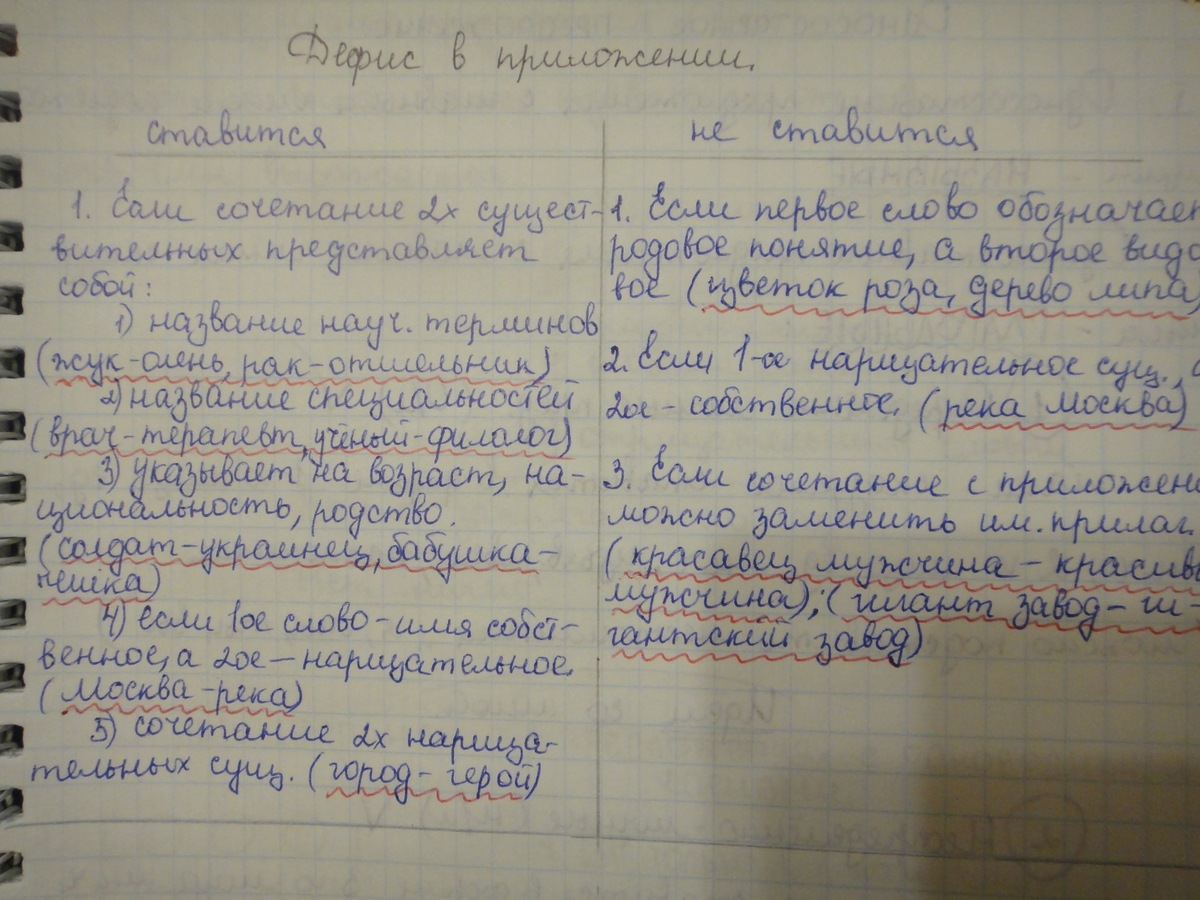 Дефис в приложении.
ставится
1. Если сочетание 2х сущест-
вительных представляет
собой:
1) название науч. терминов
(жук-олень, рак-отшельник)
2) название специальностей
(врач-терапевт, учёный-филолог)
3) указывает на возраст, на-
циональность, родство.
(солдат-украинец, бабушка-
чешка)
4) если 1ое слово - имя собст-
венное, а 2ое - нарицательное.
(Москва-река)
5) сочетание 2х нарица-
тельных сущ. (город-герой)
не ставится
1. Если первое слово обозначает
родовое понятие, а второе видо
вое (цветок роза, дерево липа)
2. Если 1-ое нарицательное сущ.,
2ое - собственное. (река Москва)
3. Если сочетание с приложен
можно заменить им. прилаг.
(красавец мужчина - красив
мужчина); (гигант завод - ги-
гантский завод)